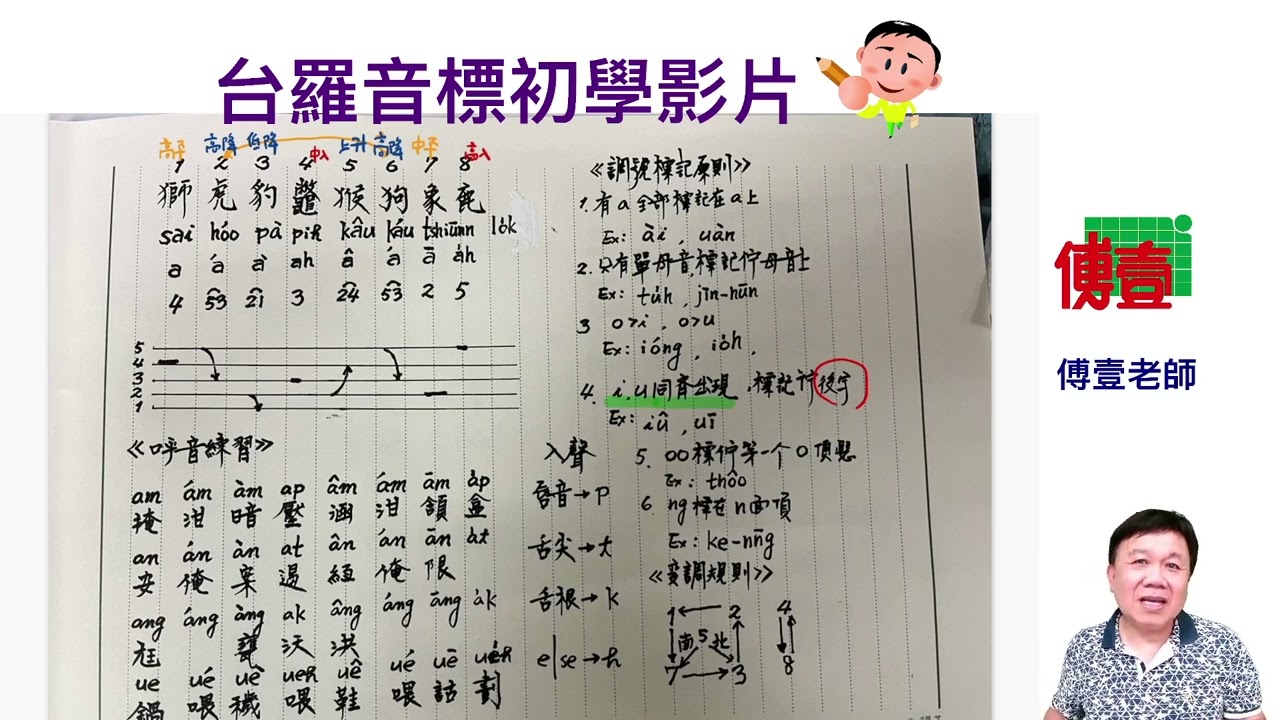 台羅音標初學影片
高平 高降 低降 中入 上升 高降 中平 高入
1 2 3 4 5 6 7 8
獅 虎 豹 鱉 猴 狗 象 鹿
sai hóo pà pih kâu káu tshiūnn lo̍k
a á à ah â á ā a̍h
4 53 21 3 24 53 2 5
5
4
3
2
1
《呼音練習》
am ám àm ap âm ám ām a̍p
掩 泔 暗 壓 涵 泔 頷 盒
an án àn at ân án ān a̍t
安 俺 案 遏 俺 限
ang áng àng ak âng áng āng a̍k
尪 甕 沃 洪
ue ué uè ueh uê ué uē ue̍h
鍋 喂 穢 喂 鞋 喂 話 劃
入聲
唇音→p
舌尖→t
舌根→k
else→h
《調號標記原則》
1. 有a全部標記在a上
Ex: ài , uàn
2. 只有單母音,標記佇母音上
Ex: tu̍h , jīn-nūn
3 o>i , o>u
Ex: ióng , io̍h ,
4. i.u同齊出現,標記佇後字
Ex: iû , uī
5. oo標佇第一个o頂懸
Ex: thôo
6. ng標在n面頂
Ex: ke-nn̄g
《變調規則》
1 ← 2 4
南 5 北
7 → 3 8
傅壹
傅壹老師